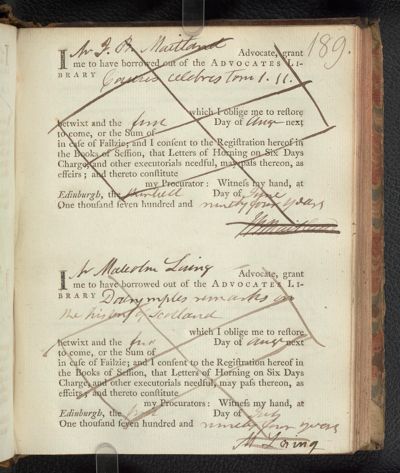 189.
I Mr J. B. Maitland Advocate, grant
me to have borrowed out of the ADVOCATES LI-
BRARY Causes celebres tom 1. 11.
which I oblige me to restore
betwixt and the first Day of Augt next
to come, or the Sum of
in case of Failzie; and I consent to the Registration hereof in
the Books of Session, that Letters of Horning on Six Days
Charge, and other executorials needful, may pass thereon, as
effeirs; and thereto constitute
my Procurator: Witness my hand, at
Edinburgh, the Day of June
One thousand seven hundred and ninety four years
I Mr Malcolm Laing Advocate, grant
me to have borrowed out of the ADVOCATES LI-
BRARY Dalrymples remarks on
the history of Scotland
which I oblige me to restore
betwixt and the first Day of Augt next
to come, or the Sum of
in case of Failzie; and I consent to the Registration hereof in
the Books of Session, that Letters of Horning on Six Days
Charge, and other executorials needful, may pass thereon, as
effeirs; and thereto constitute
my Procurators: Witness my hand, at
Edinburgh, the Day of July
One thousand seven hundred and ninety four years
M Laing